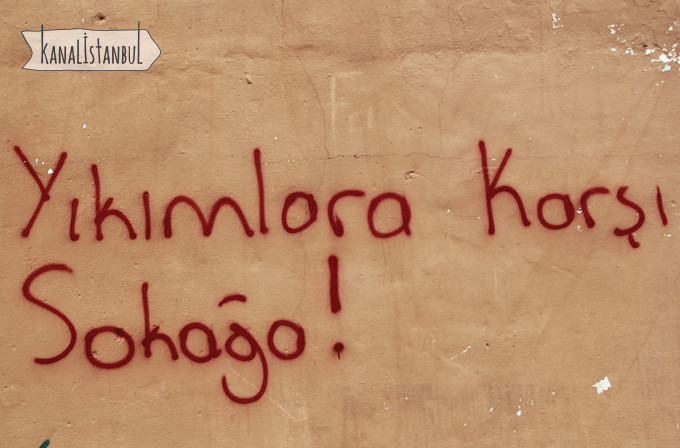 KANALİSTANBUL
Yıkımlara Karşı
Sokağa!